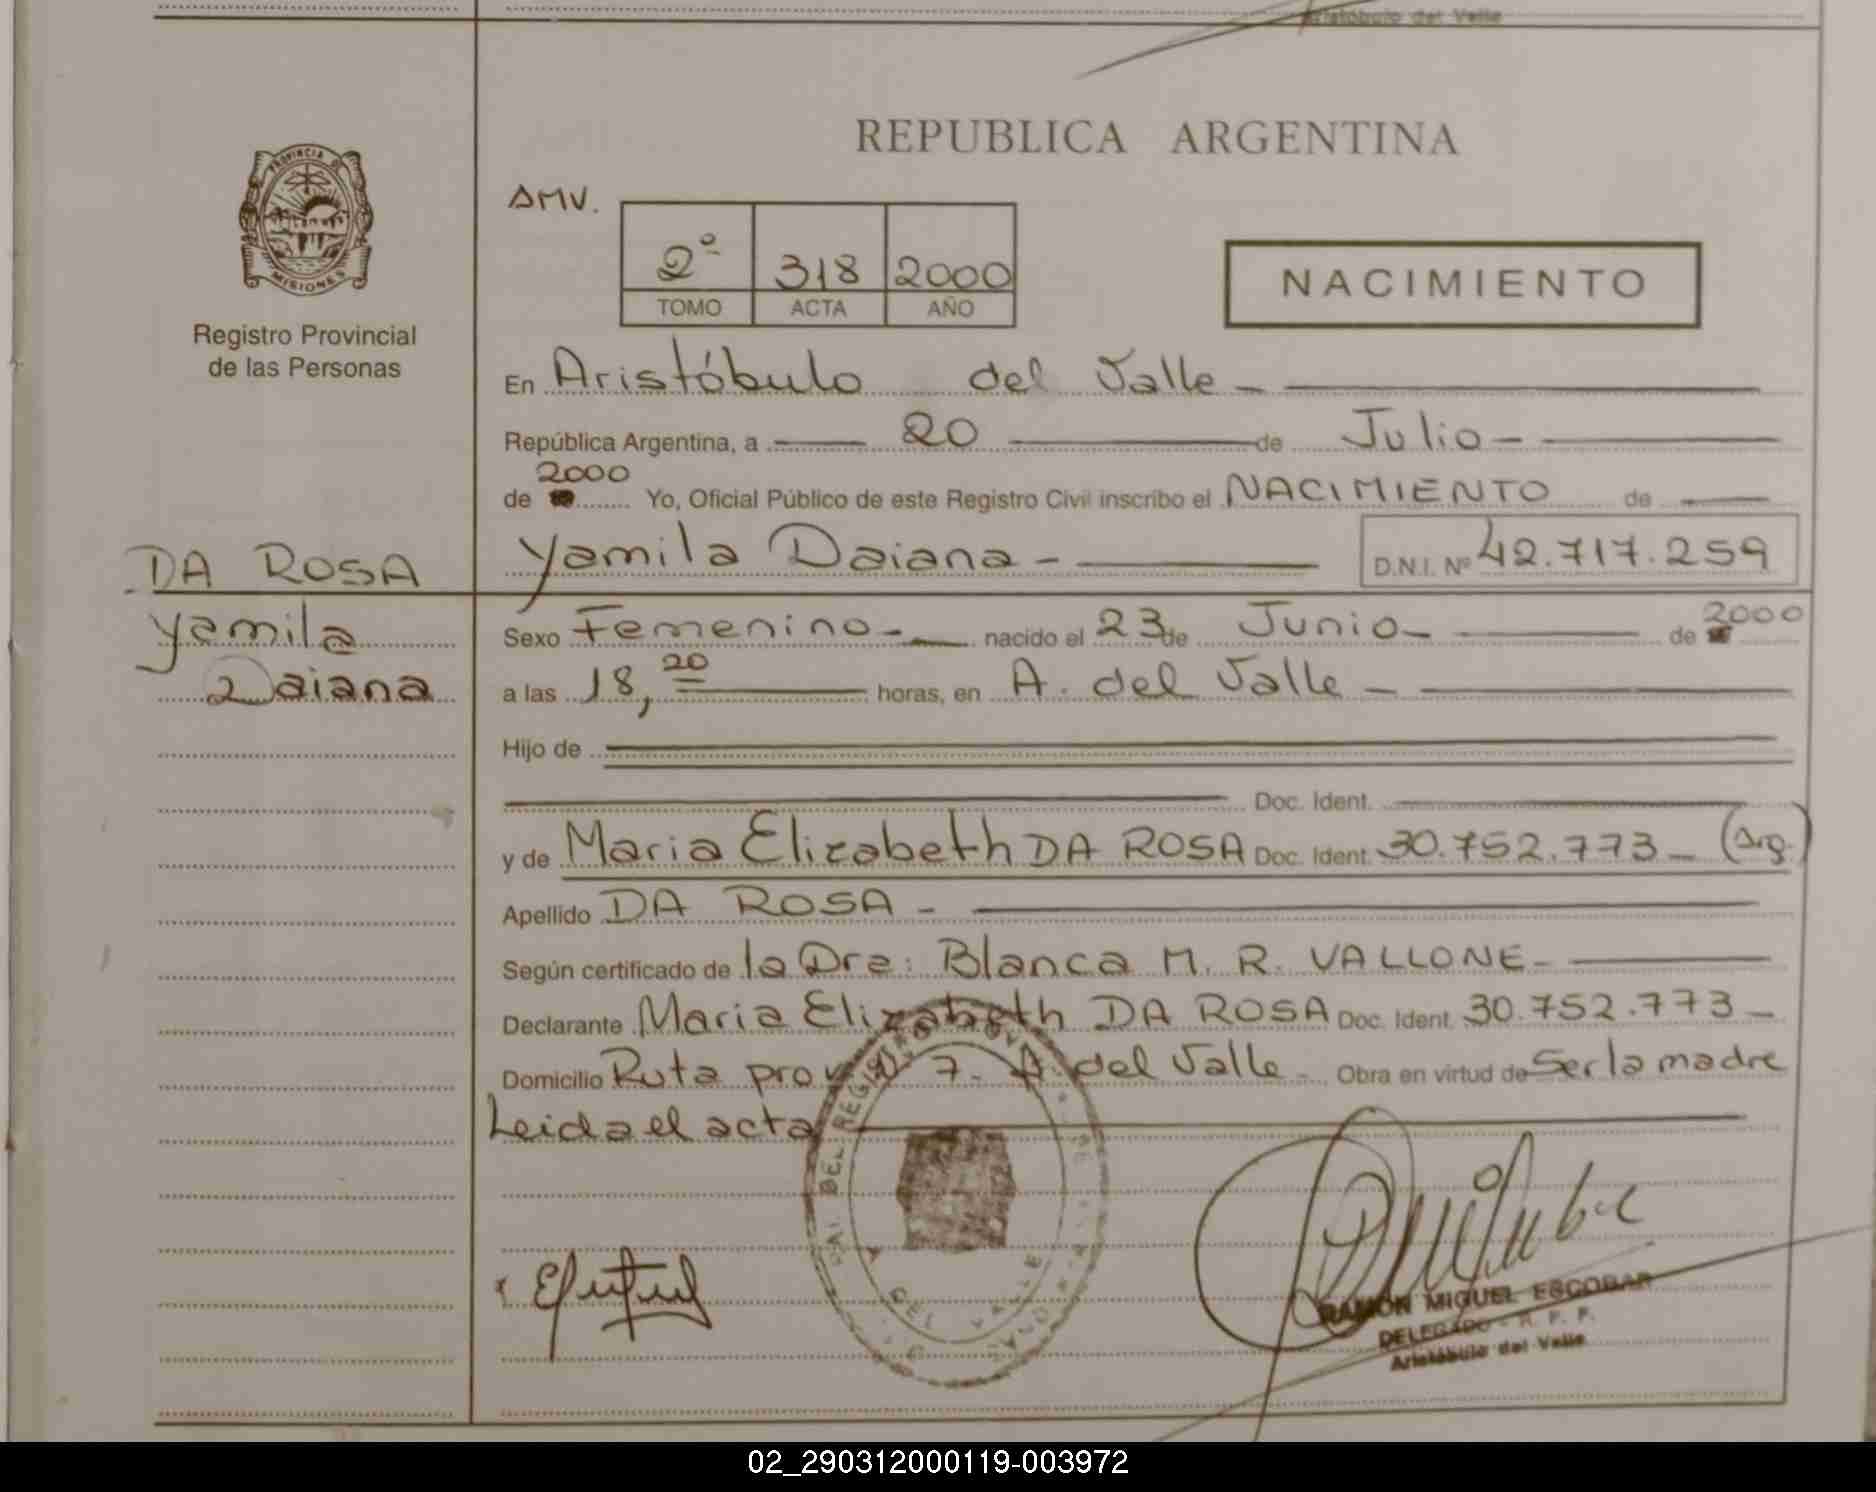 Aristóbulo del Valle
REPUBLICA ARGENTINA
PROVINCIA DE
MISIONES
Registro Provincial
de las Personas
AMV.
2º 318 2000
TOMO ACTA AÑO
NACIMIENTO
En Aristóbulo del Valle
República Argentina, a 20 de Julio
de 2000 Yo, Oficial Público de este Registro Civil inscribo el NACIMIENTO de
DA ROSA
Yamila
Daiana
Yamila Daiana D.N.I. Nº 42.717.259
Sexo Femenino nacido el 23 de Junio de 2000
a las 18,20 horas, en A. del Valle
Hijo de
Doc. Ident.
y de Maria Elizabeth DA ROSA Doc. Ident. 30.752.773 (Arg.)
Apellido DA ROSA
Según certificado de la Dra: Blanca M. R. VALLONE
Declarante Maria Elizabeth DA ROSA Doc. Ident. 30.752.773
Domicilio Ruta prov. 7. A. del Valle Obra en virtud de Ser la madre
Leida el acta
DEL REGISTRO
DEL VALLE
RAMÓN MIGUEL ESCOBAR
DELEGADO - R. P. P.
Aristóbulo del Valle
02_290312000119-003972